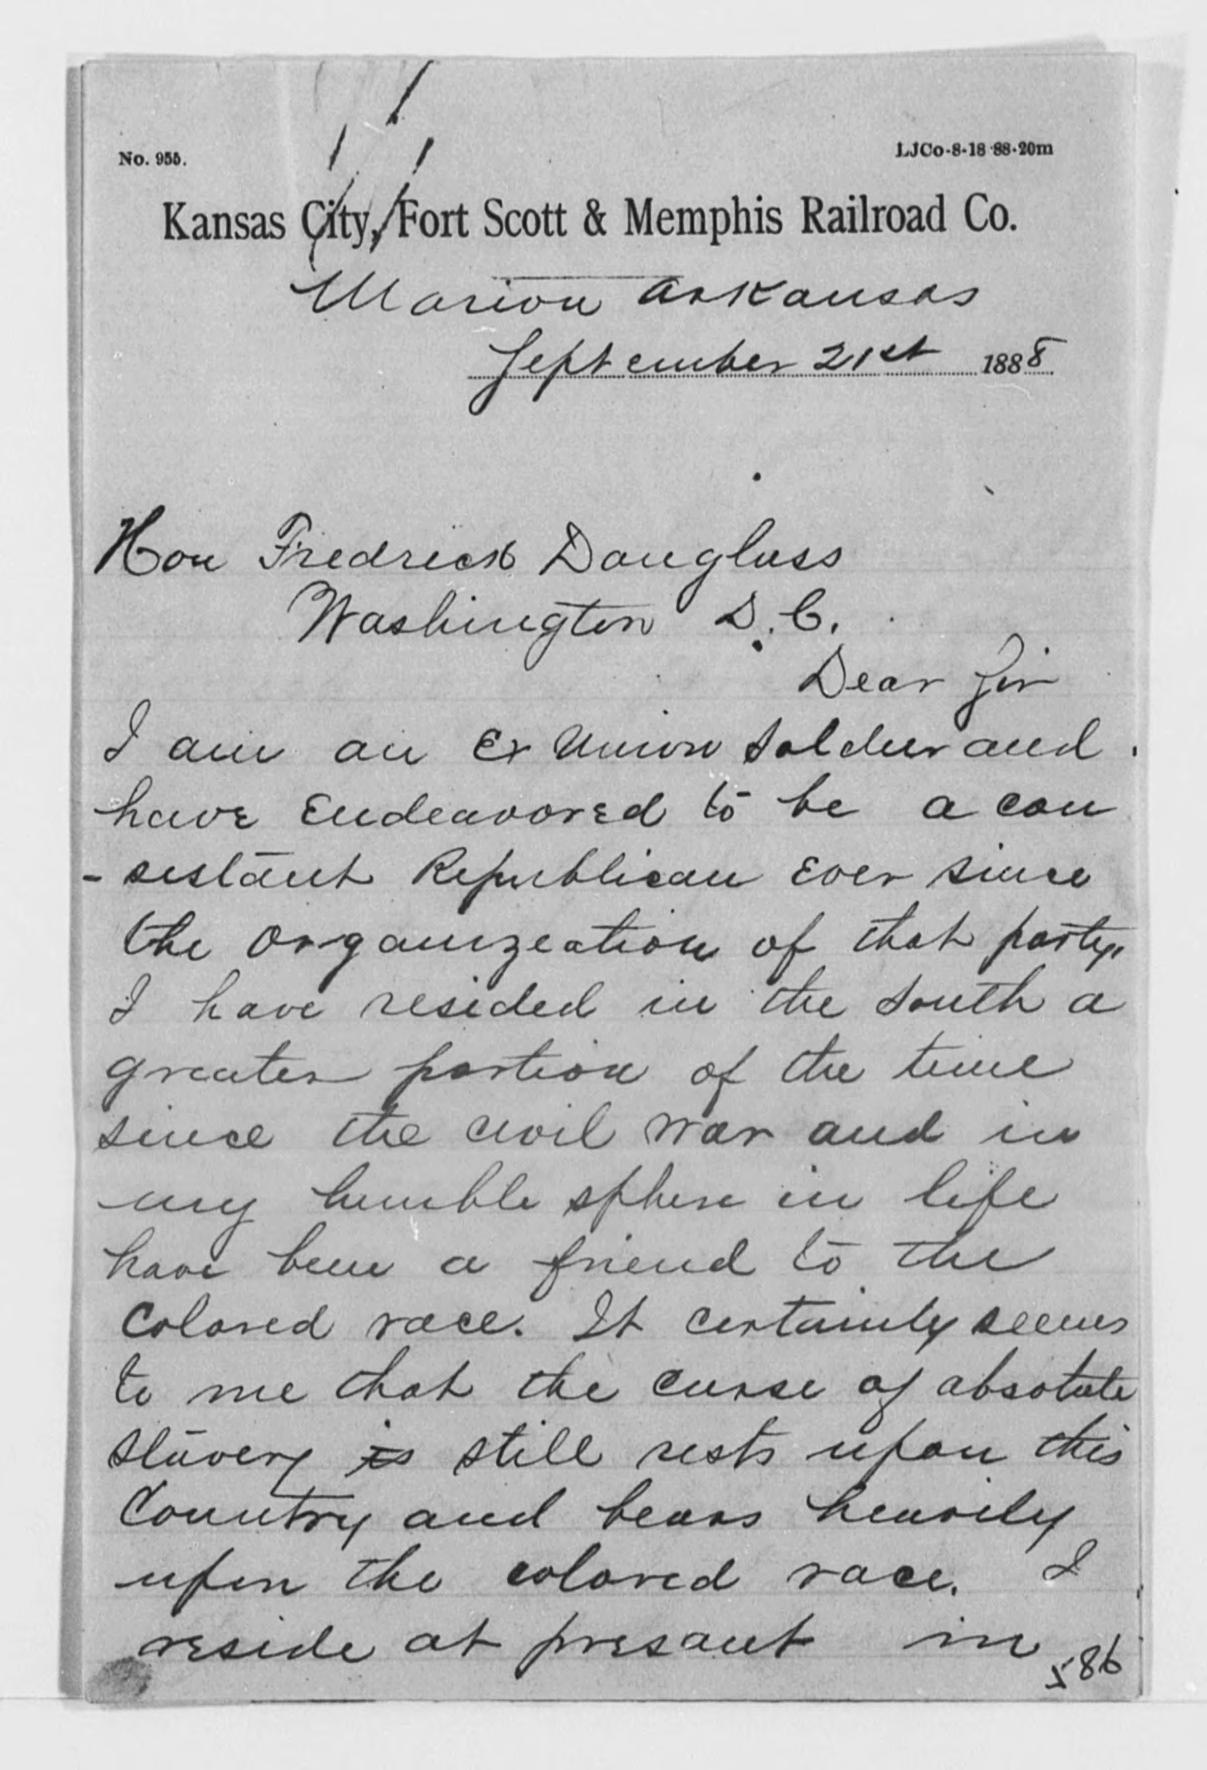 No. 955.
LJCo-8-18-88-20m
Kansas City, Fort Scott & Memphis Railroad Co.
Marion Arkansas
September 21st 1888
Hon Fredrick Douglass
Washington D.C.
Dear Sir
I am an Ex Union Soldier and
have Endeavored to be a con
-sistant Republican Ever since
the Organizeation of that party.
I have resided in the South a
greater portion of the time
since the civil war and in
my humble sphere in life
have been a friend to the
Colored race. It certainly seems
to me that the curse of absolute
slavery is still rests upon this
Country and bears heavily
upon the colored race. I
reside at presant in
586